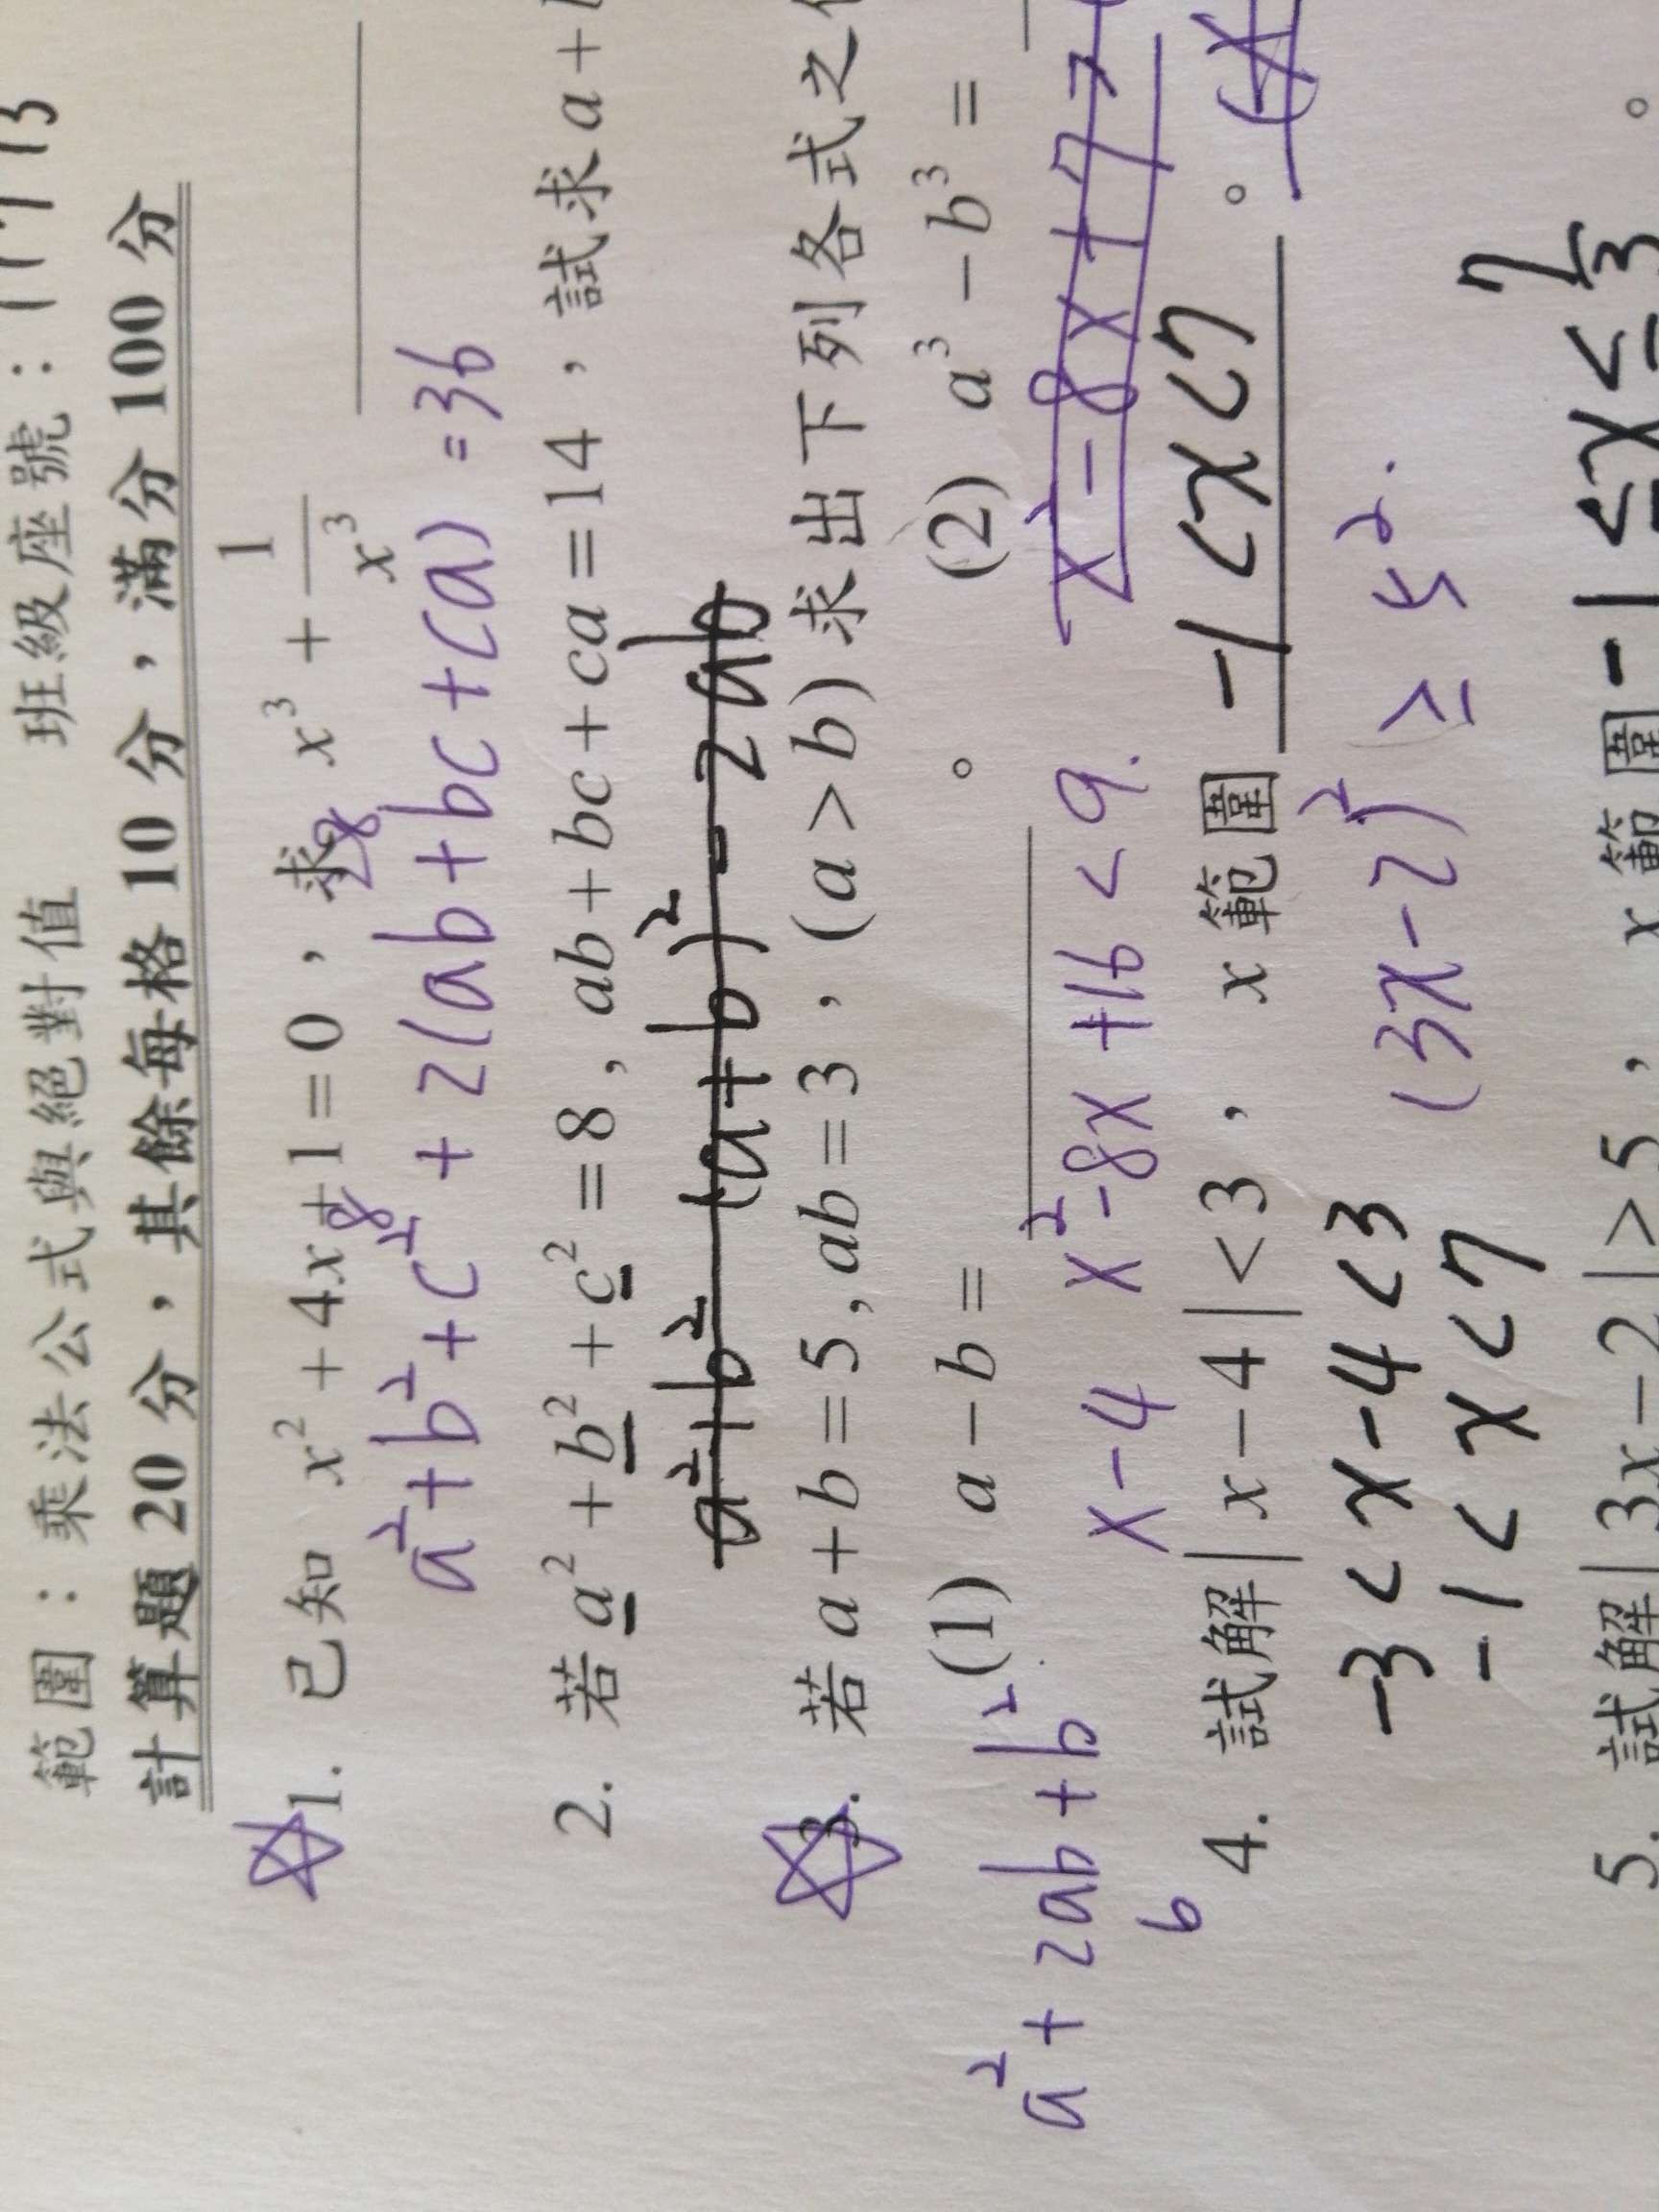 範圍：乘法公式與絕對值 班級座號：
計算題 20 分，其餘每格 10 分，滿分 100 分
1. 已知 x² + 4x + 1 = 0，求 x³ + 1/x³
8 28
a² + b² + c² + 2(ab + bc + ca) = 36
2. 若 a² + b² + c² = 8, ab + bc + ca = 14，試求 a +
a² + b² (a + b)² - 2ab
3. 若 a + b = 5, ab = 3，(a > b) 求出下列各式之
(1) a - b = 。 (2) a³ - b³ =
a² + 2ab + b²
6
x - 4 x² - 8x + 16 < 9. x² - 8x + 7
4. 試解 |x - 4| < 3，x 範圍 -1 < x < 7 。
-3 < x - 4 < 3
-1 < x < 7
(3x - 2)² ≥ 5².
5. 試解 |3x - 2| > 5，x 範圍 -1 ≤ x ≤ 7/3 。